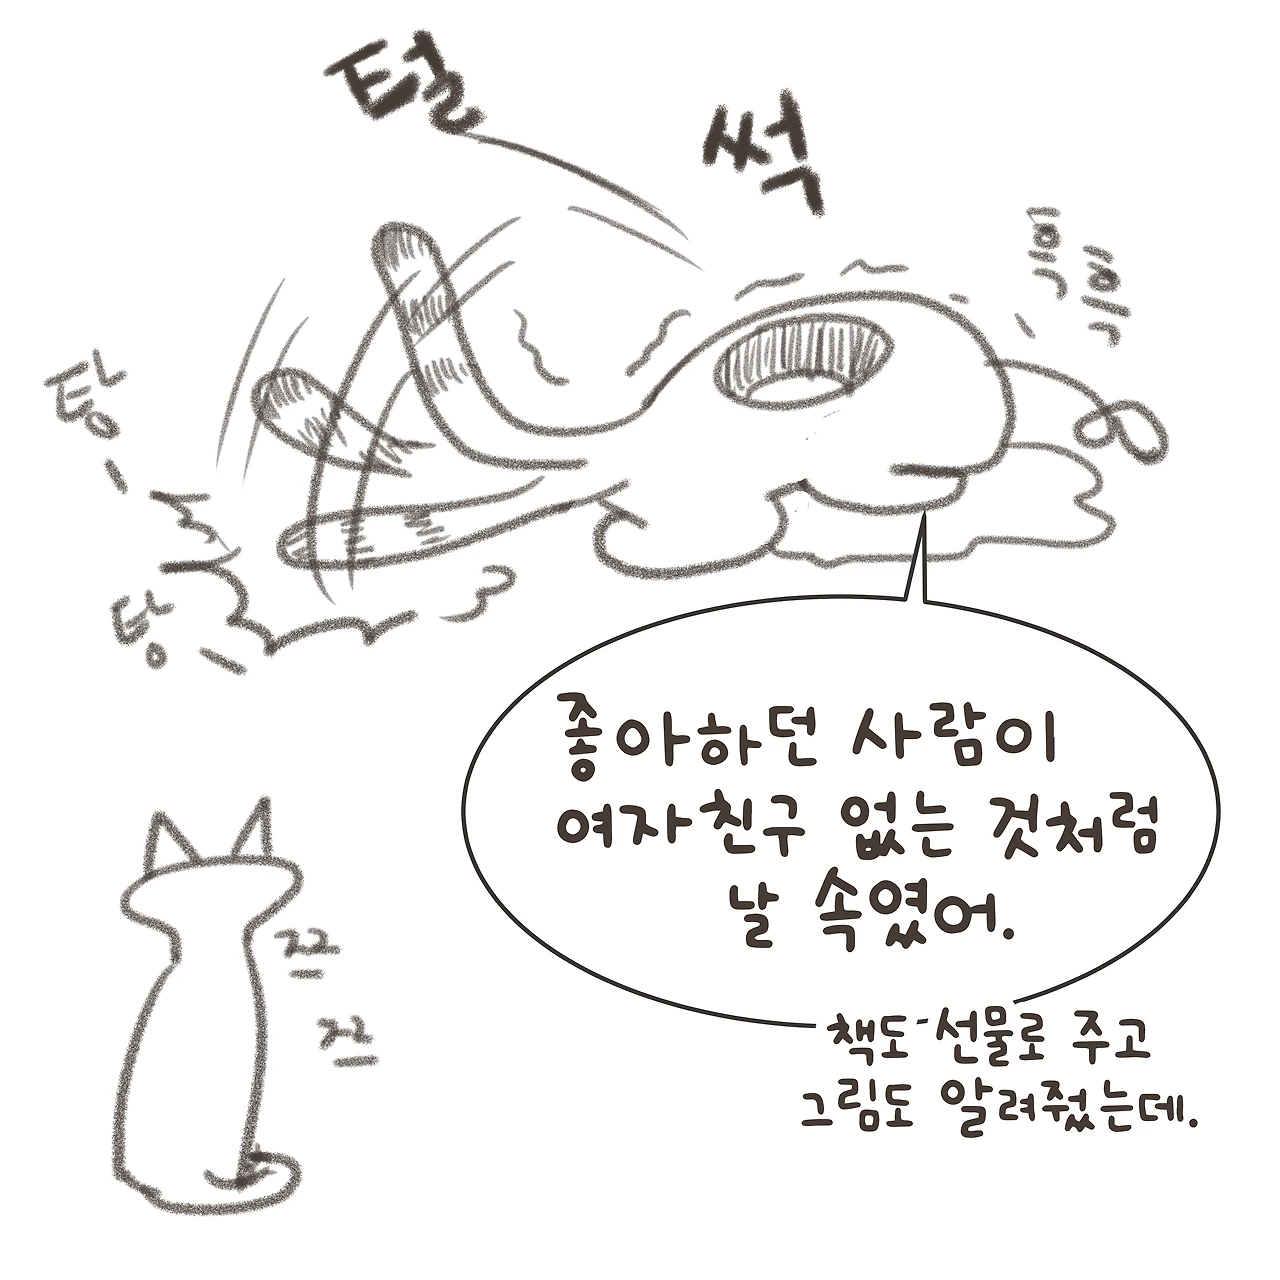 털
썩
끼이
끼이
탕
탕
좋아하던 사람이
여자친구 없는 것처럼
날 속였어.
책도 선물로 주고
그림도 알려줬는데.
끄
끄